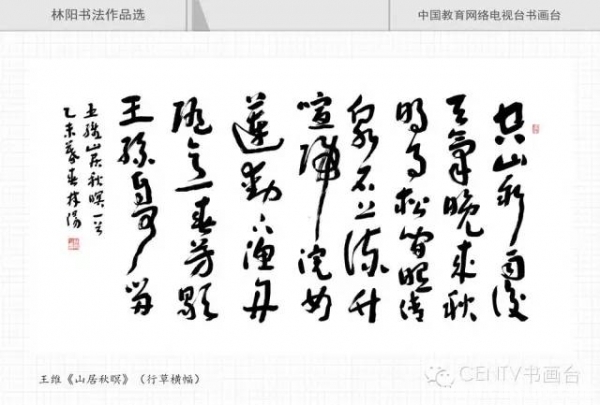 林阳书法作品选
中国教育网络电视台书画台
空山新雨後
天氣晚來秋
明月松間照清
泉石上流竹
喧歸浣女
蓮動下漁舟
隨意春芳歇
王孫自可留
王維山居秋暝一首
乙未暮春林陽
王维《山居秋暝》（行草横幅）
CENTV书画台